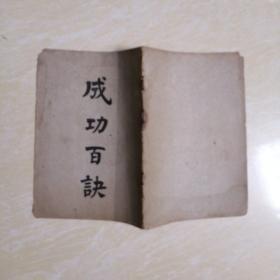 成功百訣